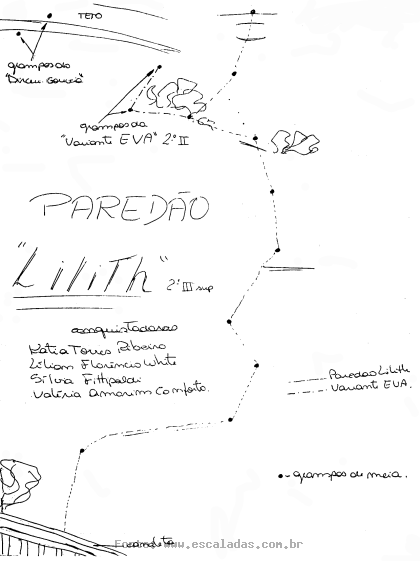 TETO
grampos do
"Dirceu Gouveia"
grampos da
"Variante EVA" 2º II
PAREDÃO
"LiliTh" 2º III sup
conquistadoras
Katia Torres Ribeiro
Lilian Florêncio White
Silvia Fittipaldi
Valéria Amorim Conforto.
Paredão Lilith
Variante EVA.
- grampos de meia.
www.escaladas.com.br